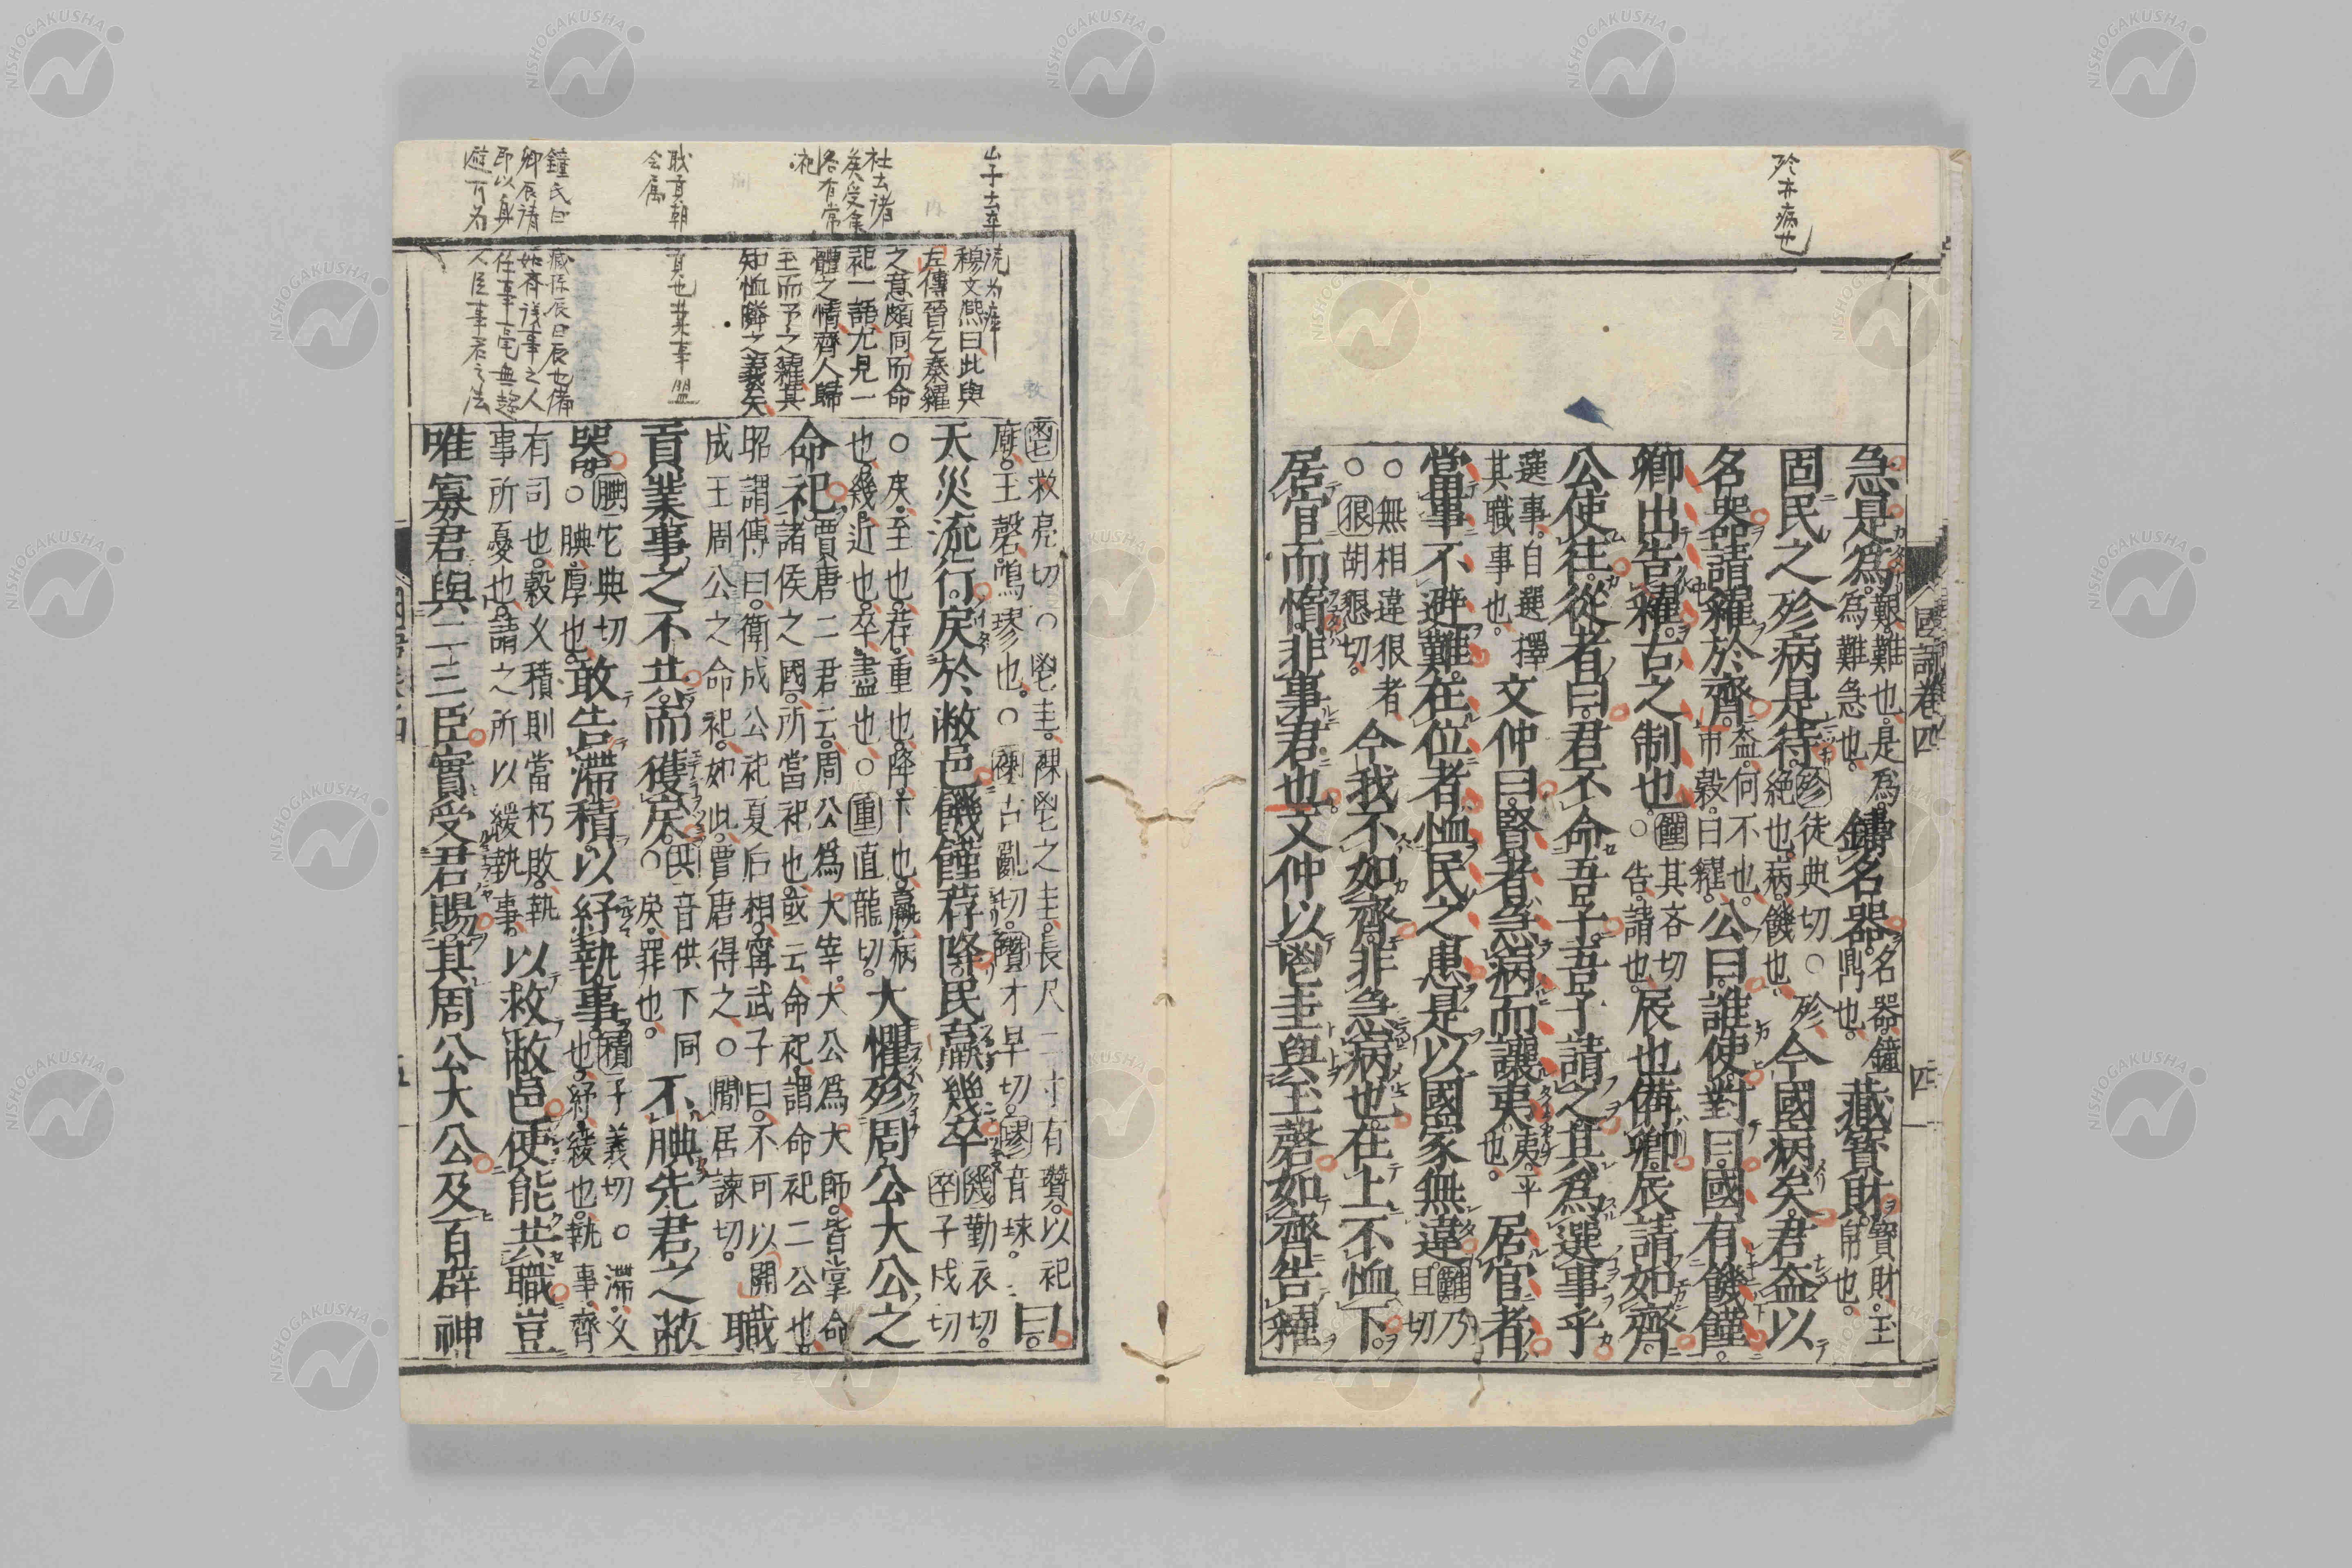 殄亦病也
國語卷四
四
急是爲。艱。難也。是爲。爲難急也。鑄名器。名器。鐘鼎也。藏寶財。寶財。玉帛也。
固民之殄病是待。殄徒典切○殄絶也。病。饑也。今國病矣。君盍以
名器請糴於齊。盍。何不也。市穀曰糴。公曰。誰使。對曰。國有饑饉。
卿出告糴。古之制也。饉其吝切○告。請也。辰也備卿。辰請如齊。
公使往。從者曰。君不命吾子。吾子請之。其爲選事乎
選事。自選擇其職事也。文仲曰。賢者急病而讓夷。夷。平也。居官者
當事不避難。在位者恤民之患。是以國家無違。難乃旦切
○無相違狠者○狠胡懇切。今我不如齊。非急病也。在上不恤下。
居官而惰。非事君也。文仲以鬯圭與玉磬如齊告糴
穆文熙曰此與
左傳晉乞秦糴
之意頗同而命
祀一語尤見一
體之情齊人歸
玉而予之糴其
知恤隣之義矣
杜云諸
侯受命
各有常
祀
鬯救亮切○鬯圭。祼鬯之圭。長尺二寸有瓚。以祀廟。玉磬。鳴璆也。○祼古亂切。瓚才旱切。璆音球。曰。
天災流行。戾於敝邑。饑饉荐降。民羸幾卒。幾勤衣切。卒子戌切
○戾。至也。荐。重也。降。下也。羸。病也。幾。近也。卒。盡也○重直龍切。大懼殄周公大公之
命祀。賈唐二君云。周公爲大宰。大公爲大師。皆掌命諸侯之國。所當祀也。或云。命祀。謂命祀二公也。
昭謂傳曰。衛成公祀夏后相。甯武子曰。不可以間成王周公之命祀。如此。賈唐得之。○間居諫切。職
貢業事之不共。而獲戾。共音供下同○戾。罪也。不腆先君之敝
器。腆它典切○腆。厚也。敢告滯積。以紓執事。積子義切○滯。久也。紓。緩也。執事。齊
有司也。穀久積則當朽敗。執事所憂也。請之所以緩執事。以救敝邑。使能共職。豈
唯寡君與二三臣實受君賜。其周公大公及百辟神
NISHOGAKUSHA